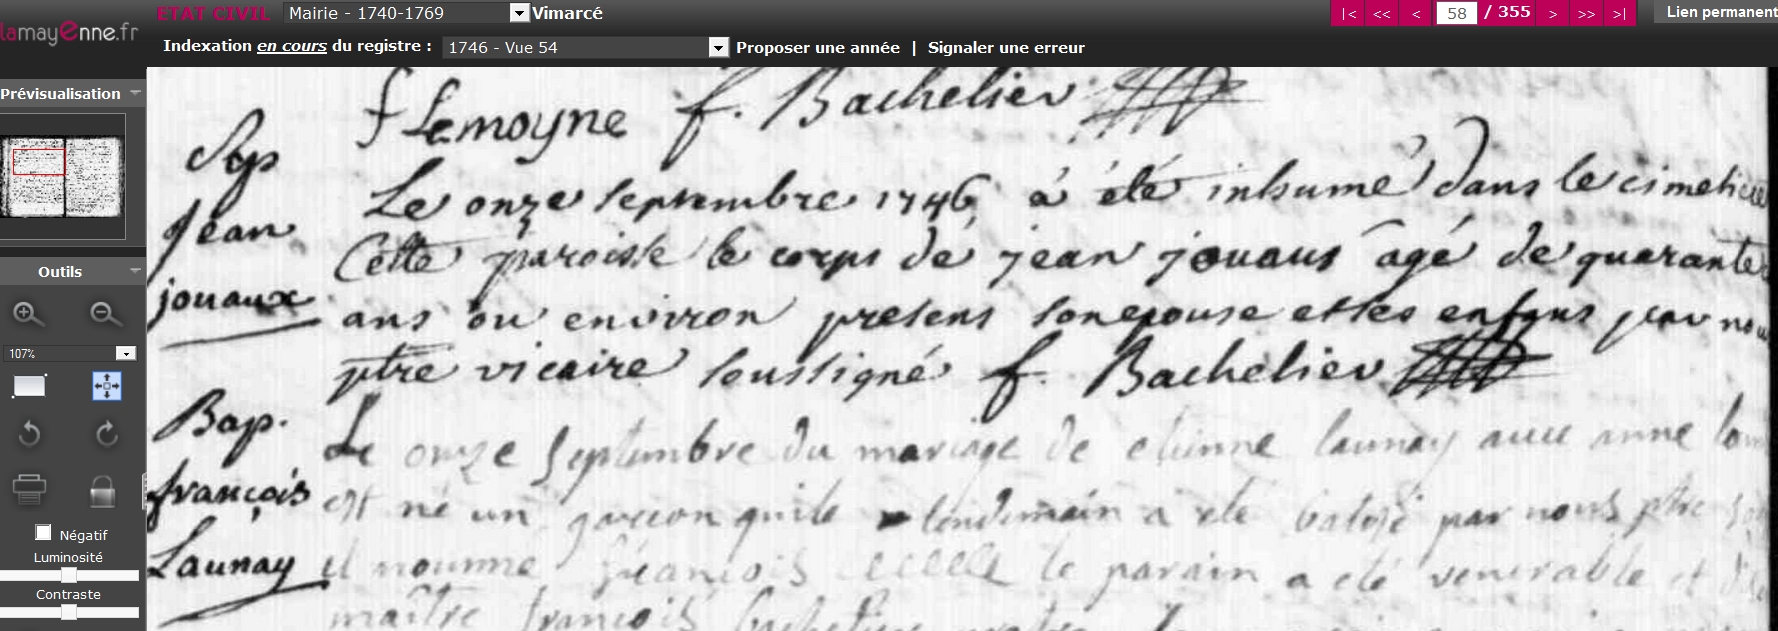 lamayenne.fr
ETAT CIVIL Mairie - 1740-1769 Vimarcé
|< << < 58 / 355 > >> >| Lien permanent
Indexation en cours du registre : 1746 - Vue 54 Proposer une année | Signaler une erreur
Prévisualisation
Outils
107%
Négatif
Luminosité
Contraste
f Lemoyne f. Bachelier
Sep
jean
jouaux
Le onze septembre 1746 à été inhumé dans le cimetiere
Cette paroisse le corps dé jean jouaus agé de quarante
ans ou environ presens son epouse et ses enfans par nous
ptre vicaire soussigné f. Bachelier
Bap.
françois
Launay
Le onze septembre du mariage de etienne launay avec anne
est né un garcon qui le lendemain a ete batisé par nous ptre
il nomme francois le parain a eté venerable et
maître francois